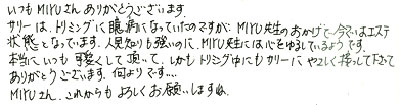 いつもMIYUさんありがとうございます。
サリーは、トリミングに臆病になっていたのですが、MIYU先生のおかげで今ではエステ
状態となっています。人見知りも強いのに、MIYU先生には心をゆるしているようです。
本当にいつも可愛くして頂いて、しかもトリミング中にもサリーにやさしく接して下さって
ありがとうございます。何よりです…
MIYUさん、これからもよろしくお願いしますね。